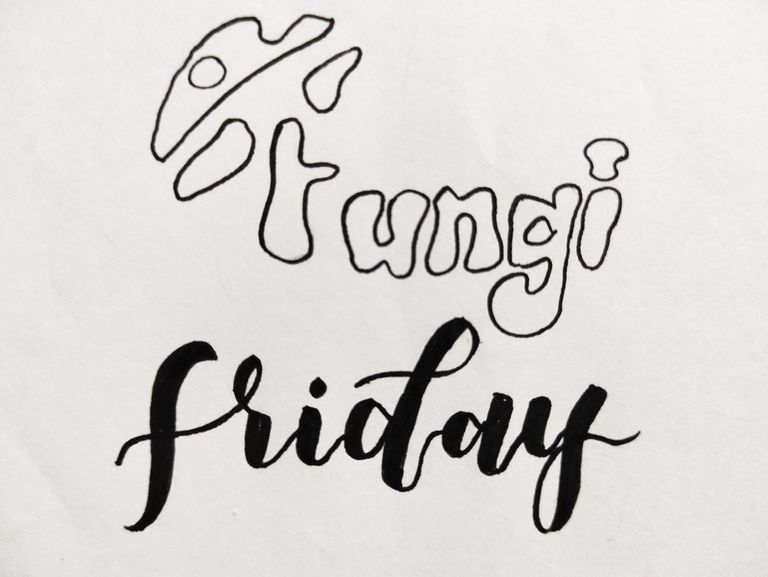 fungi
friday